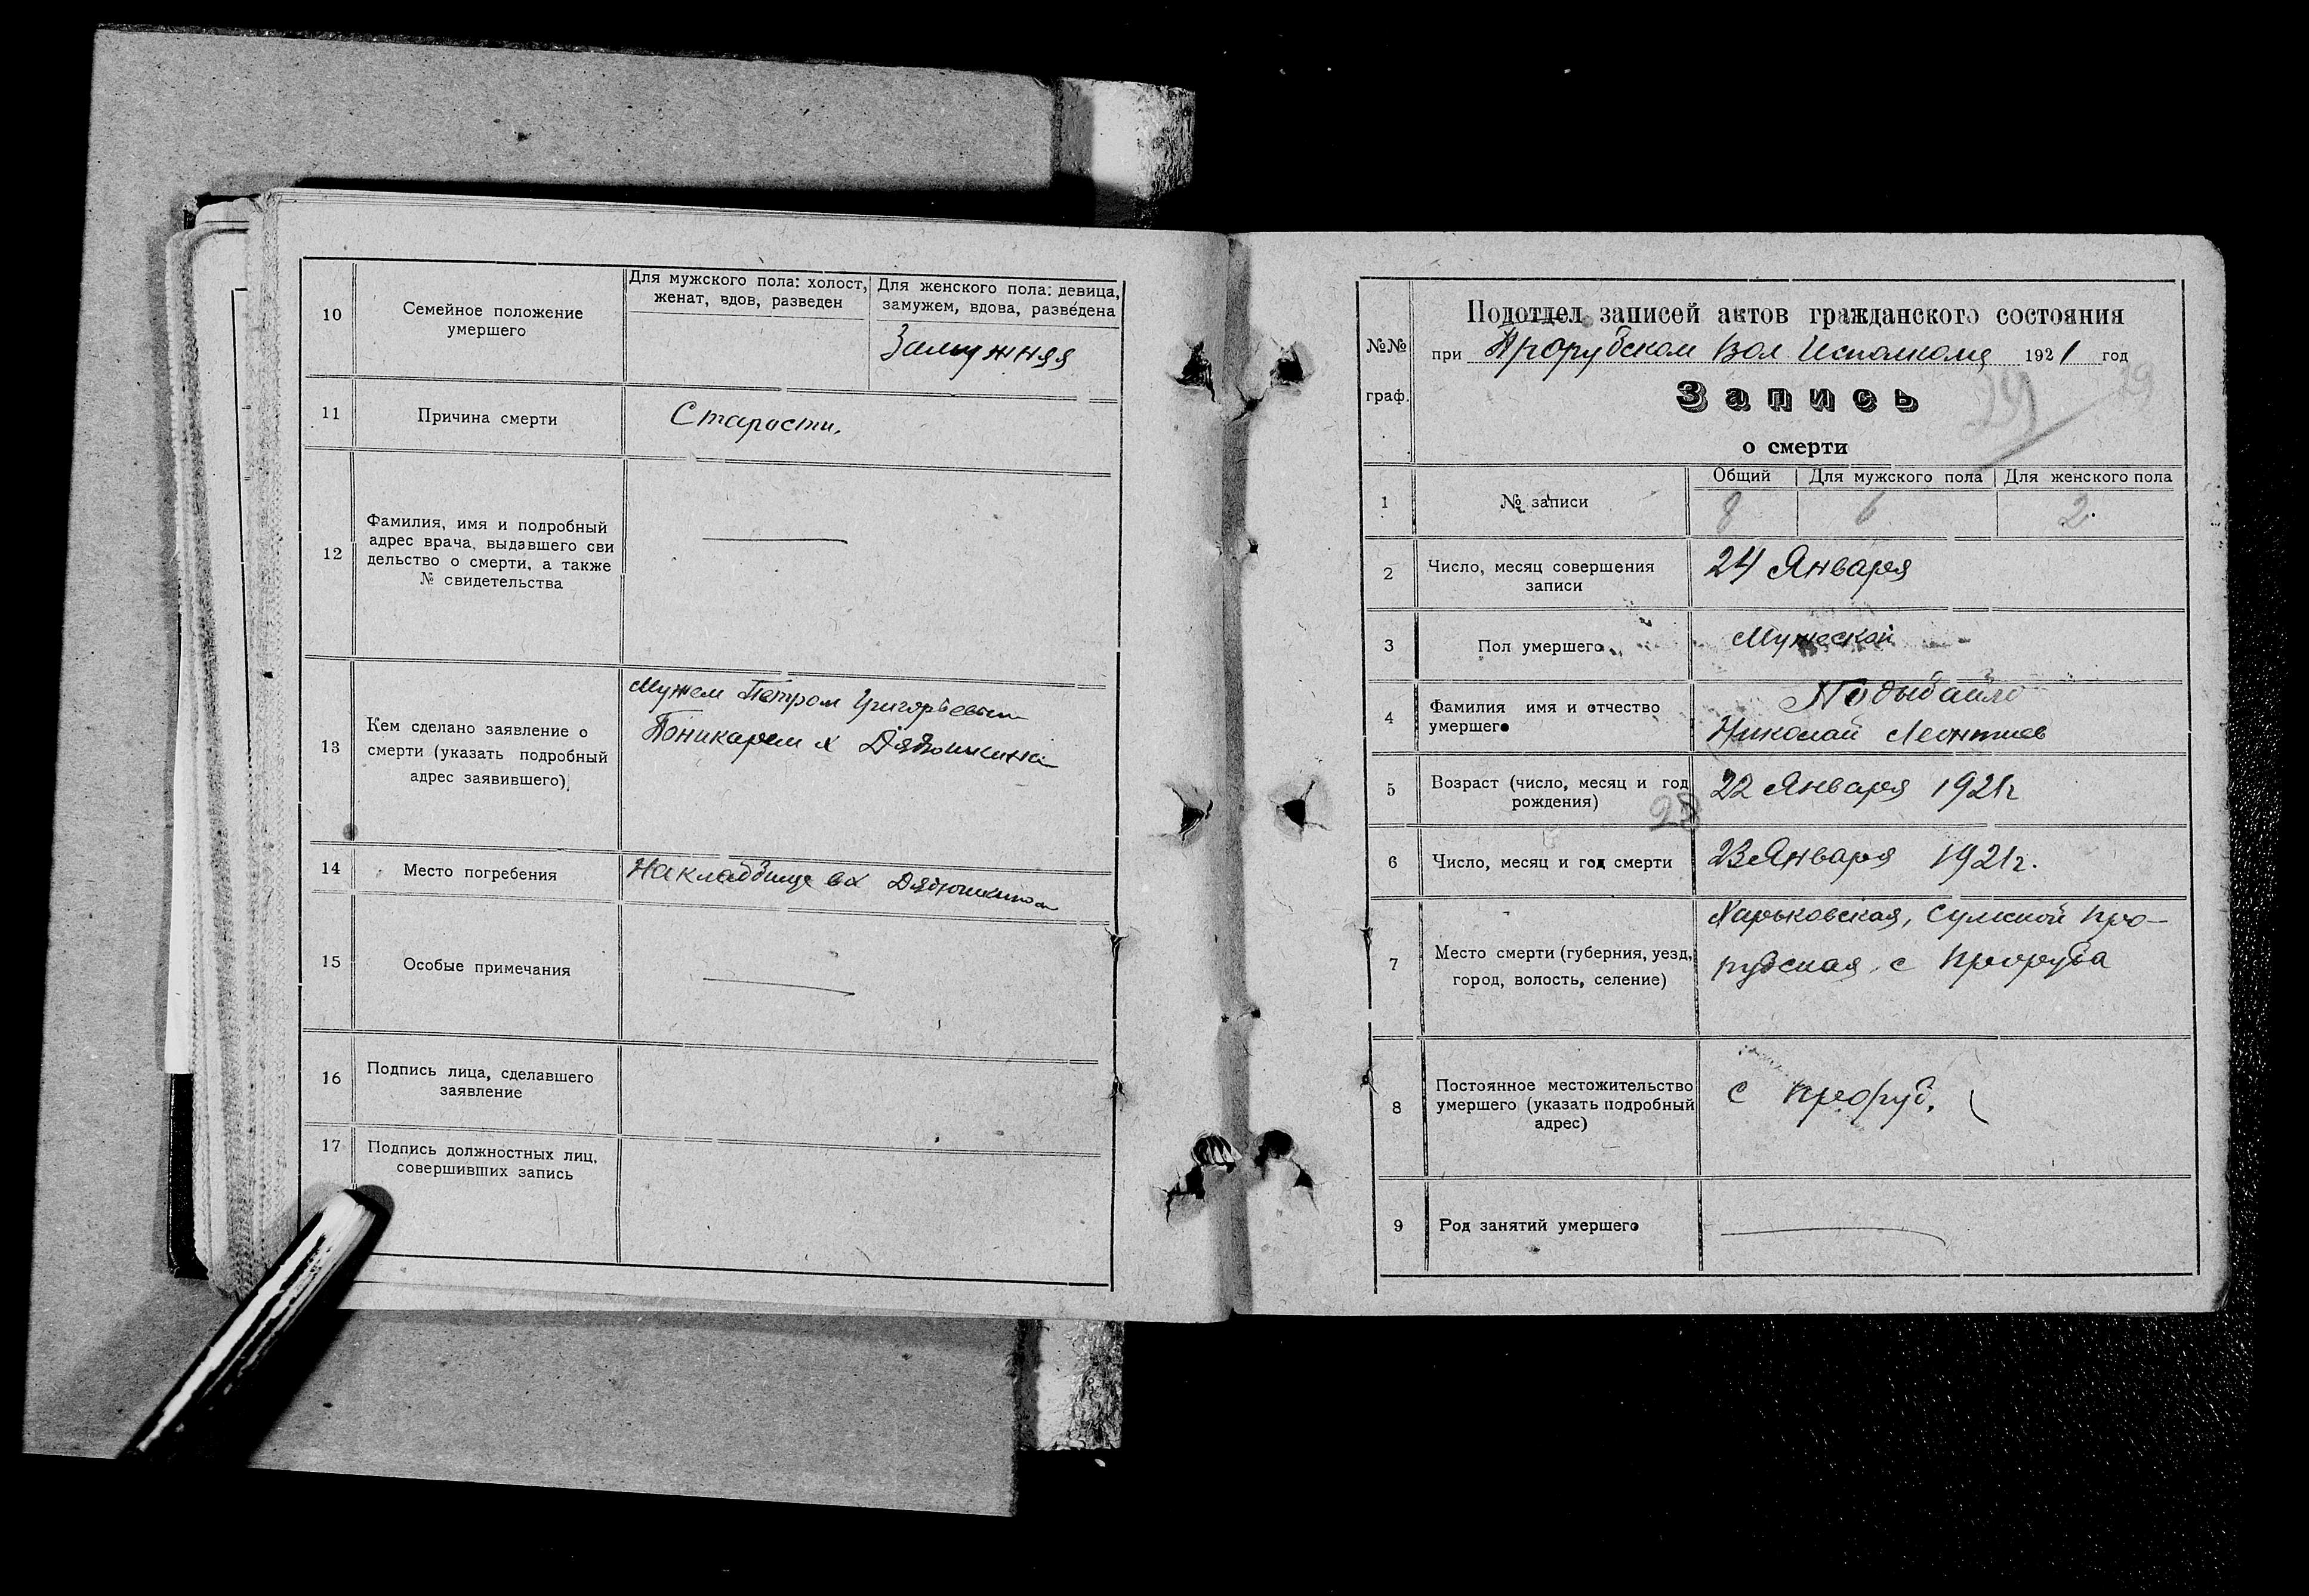 10
Семейное положение
умершего
Для мужского пола: холост,
женат, вдов, разведен
Для женского пола: девица,
замужем, вдова, разведена
Замужняя
11
Причина смерти
Старасти.
12
Фамилия, имя и подробный
адрес врача, выдавшего сви
дельство о смерти, а также
№ свидетельства
13
Кем сделано заявление о
смерти (указать подробный
адрес заявившего)
Мужем Петром Григорьевым
Поникарем х Дядюшкина
14
Место погребения
На кладбище в х Дядюшкином
15
Особые примечания
16
Подпись лица, сделавшего
заявление
17
Подпись должностных лиц,
совершивших запись
№№
граф.
Подотдел записей актов гражданского состояния
при Прорубском Вол Исполкоме 1921 год
Запись
29
о смерти
1
№ записи
Общий
Для мужского пола
Для женского пола
8
6
2
2
Число, месяц совершения
записи
24 Января
3
Пол умершего
Мужеской
4
Фамилия имя и отчество
умершего
Николай Леонтиев
5
Возраст (число, месяц и год
рождения)
22 Января 1921г
6
Число, месяц и год смерти
23 Января 1921г.
7
Место смерти (губерния, уезд,
город, волость, селение)
Харьковская, Сумской Про-
рубская, с Проруба
8
Постоянное местожительство
умершего (указать подробный
адрес)
с Проруб.
9
Род занятий умершего